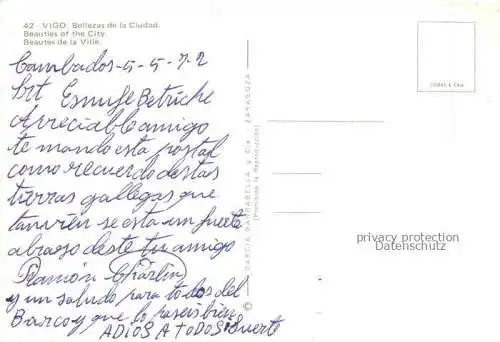 42 - VIGO. Bellezas de la Ciudad.
Beauties of the City.
Beautés de la Ville.
Cambados-5-5-72
Srt
Apreciable amigo
te mando esta postal
como recuerdo destas
tierras gallegas que
tanvien se esta un fuerte
abrazo deste tu amigo
Ramon Charlin
y un saludo para todos del
Barco y que lo paseis bien
ADIOS A TODOS Suerte
GARCIA GARRABELLA y Cía. ZARAGOZA
(Prohibida la Reproducción)
privacy protection
Datenschutz